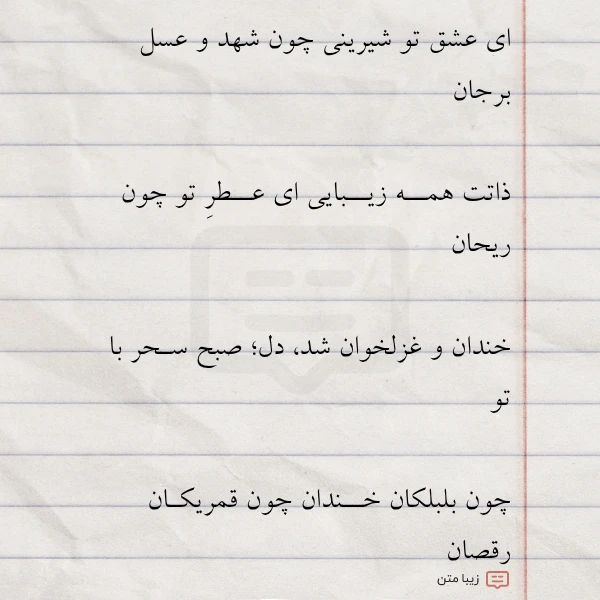 ای عشق تو شیرینی چون شهد و عسل
برجان
ذاتت همـــه زیـــبایی ای عـــطرِ تو چون
ریحان
خندان و غزلخوان شد، دل؛ صبح ســحر با
تو
چون بلبلکان خـــندان چون قمریکــان
رقصان
زیبا متن